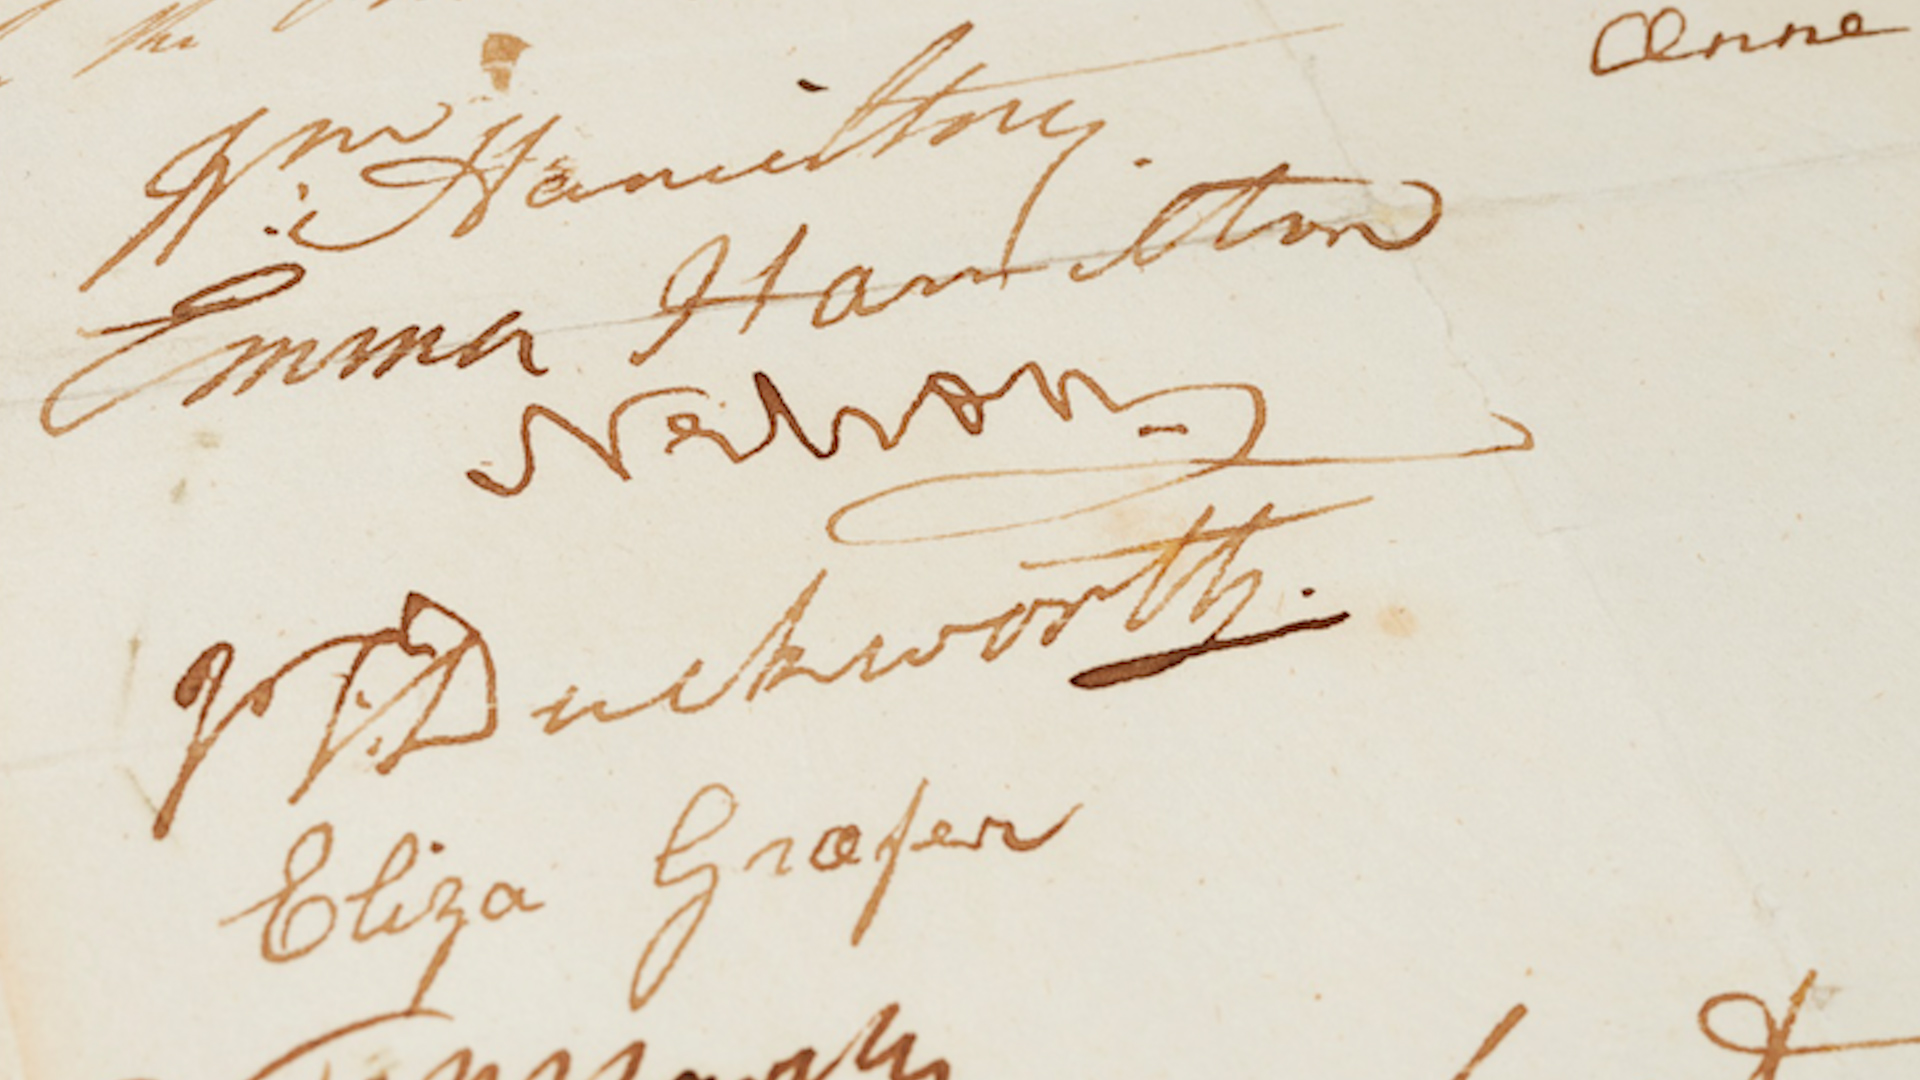 the
Anne
Wm: Hamilton
Emma Hamilton
Nelson
J T: Duckworth.
Eliza Græfer